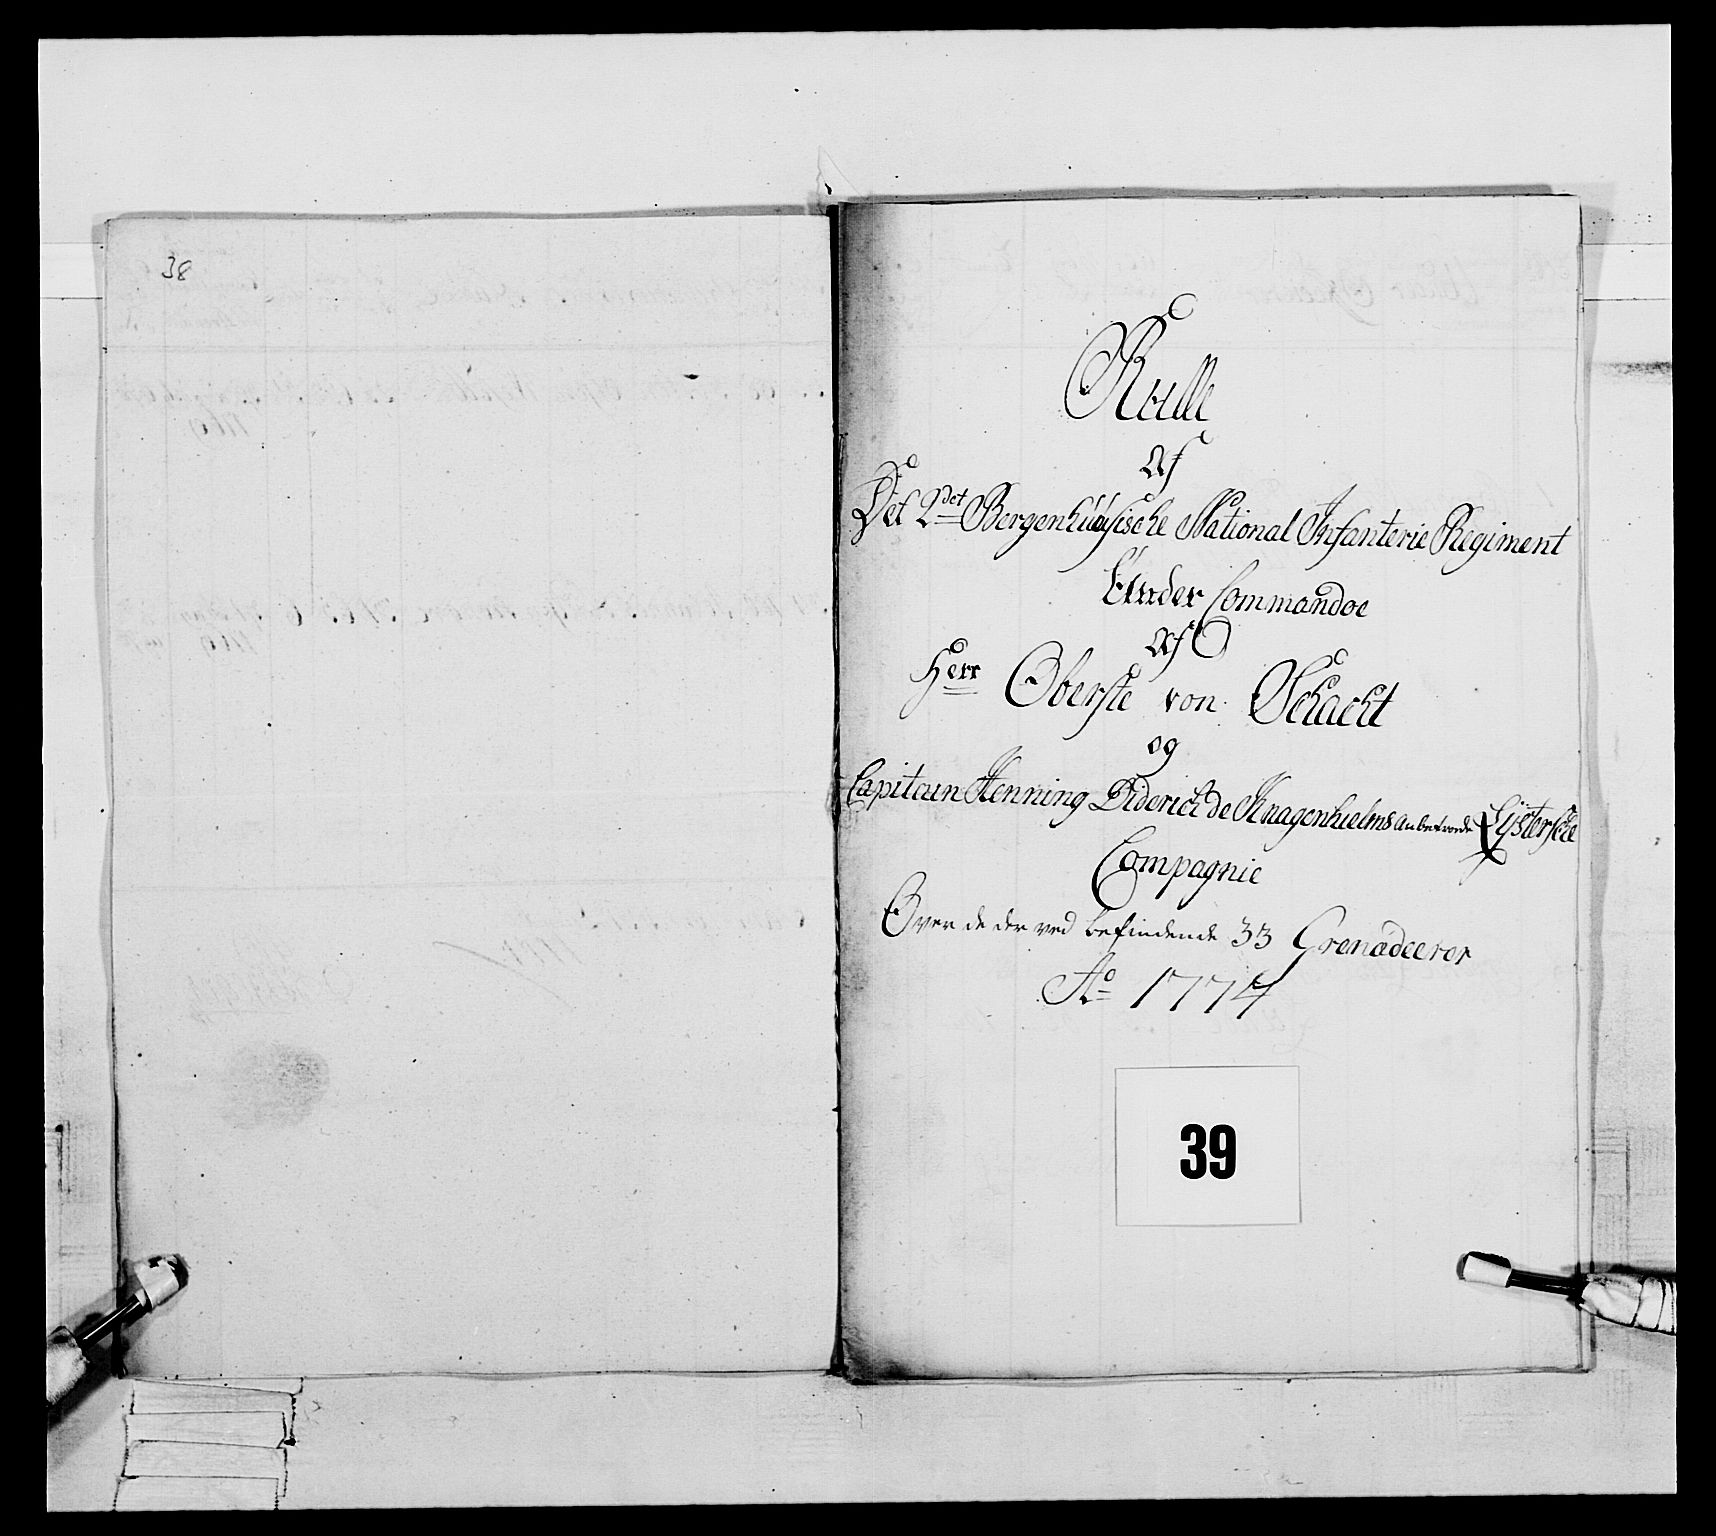 38
Rulle
Af
Det 2det Bergenhuusische National Infanterie Regiment
Under Commandoe
Af
Herr Oberste von Schacht
og
Capitain Henning Diderich de Knagenhielms anbetroede Lysterske
Compagnie
Over de der ved befindende 33 Grenadeerer
Ao 1774
39